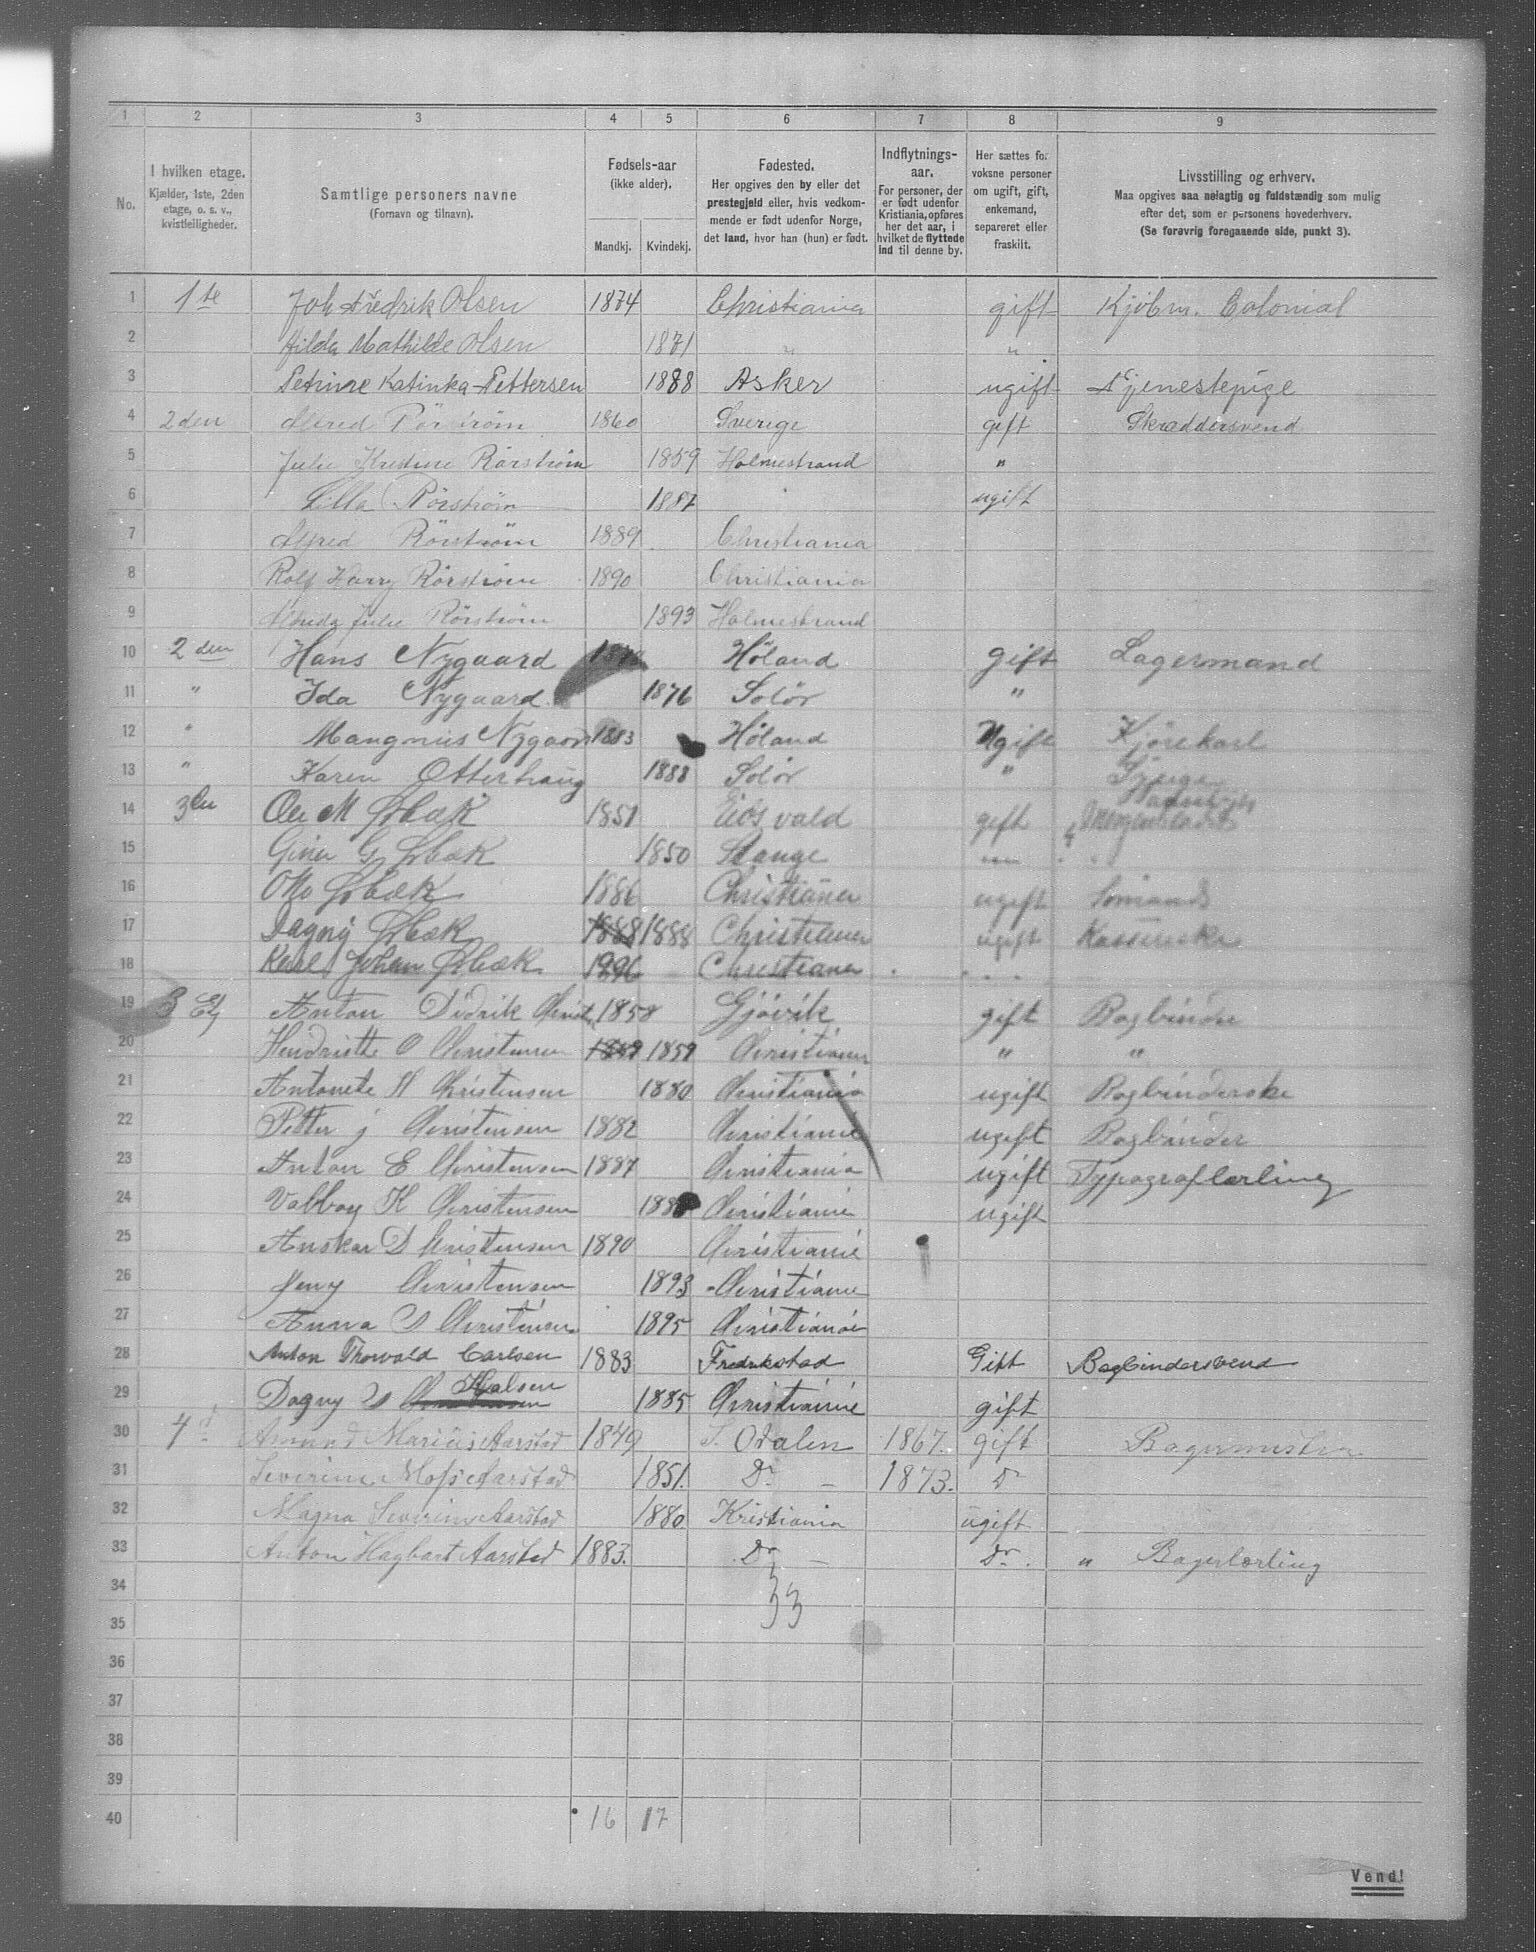 1 2 3 4 5 6 7 8 9
No.
I hvilken etage.
Kjælder, 1ste, 2den
etage, o. s. v.,
kvistleiligheder.
Samtlige personers navne
(Fornavn og tilnavn).
Fødsels-aar
(ikke alder).
Mandkj. Kvindekj.
Fødested.
Her opgives den by eller det
prestegjeld eller, hvis vedkom-
mende er født udenfor Norge,
det land, hvor han (hun) er født.
Indflytnings-
aar.
For personer, der
er født udenfor
Kristiania, opføres
her det aar, i
hvilket de flyttede
ind til denne by.
Her sættes for
voksne personer
om ugift, gift,
enkemand,
separeret eller
fraskilt.
Livsstilling og erhverv.
Maa opgives saa nøiagtig og fuldstændig som mulig
efter det, som er personens hovederhverv.
(Se forøvrig foregaaende side, punkt 3).
1 1ste Joh Fredrik Olsen 1874 Christiania gift Kjöbm. Colonial
2 Hilda Mathilde Olsen 1871 " "
3 Petrine Katinka Pettersen 1888 Asker ugift Tjenestepige
4 2den Alfred Rörström 1860 Sverige gift Skræddersvend
5 Julie Kristine Rörström 1859 Holmestrand "
6 Lilla Rörström 1887 ugift
7 Alfred Rörström 1889 Christiania
8 Rolf Harry Rörström 1890 Christiania
9 Alfrida Julie Rörström 1893 Holmestrand
10 2den Hans Nygaard Höland gift Lagermand
11 " Ida Nygaard 1876 Solör "
12 " Mangnus Nygaard 1883 Höland Ugift Kjörekarl
13 " Karen Otterhaug 1888 Solör "
14 3die Ole M Ørbæk 1851 Eidsvald gift
15 G Ørbæk 1850 Stange
16 Otto Ørbæk 1886 Christiania ugift Sömand
17 Dagny Ørbæk 1888 1888 Christiania ugift Kasserske
18 Karl Johan Ørbæk 1896 Christiania
19 3 Etg Anton Didrik Christ 1858 Gjövik gift Bogbinder
20 Hendriette O Christensen 1859 1859 Christiania " "
21 Antonete H Christensen 1880 Christiania ugift Bogbinderske
22 Petter J Christensen 1882 Christiania ugift Bogbinder
23 Anton E Christensen 1887 Christiania ugift Typograflærling
24 Valborg K Christensen Christiania ugift
25 Anskar D Christensen 1890 Christiania
26 Jeny Christensen 1893 Christiania
27 Anna O Christensen 1895 Christiania
28 Anton Thorvald Carlsen 1883 Fredrikstad Gift Bogbindersvend
29 Dagny Kalsen 1885 Christiania gift
30 4d Amund Marius Aarstad 1849 S. Odalen 1867. gift Bagermester
31 Severine Aarstad 1851. Do – 1873. Do
32 Magna Severine Aarstad 1880 Kristiania ugift
33 Anton Hagbart Aarstad 1883. Do – Do. " Bagerlærling
34
33
35
36
37
38
39
40 16 17
Vend!